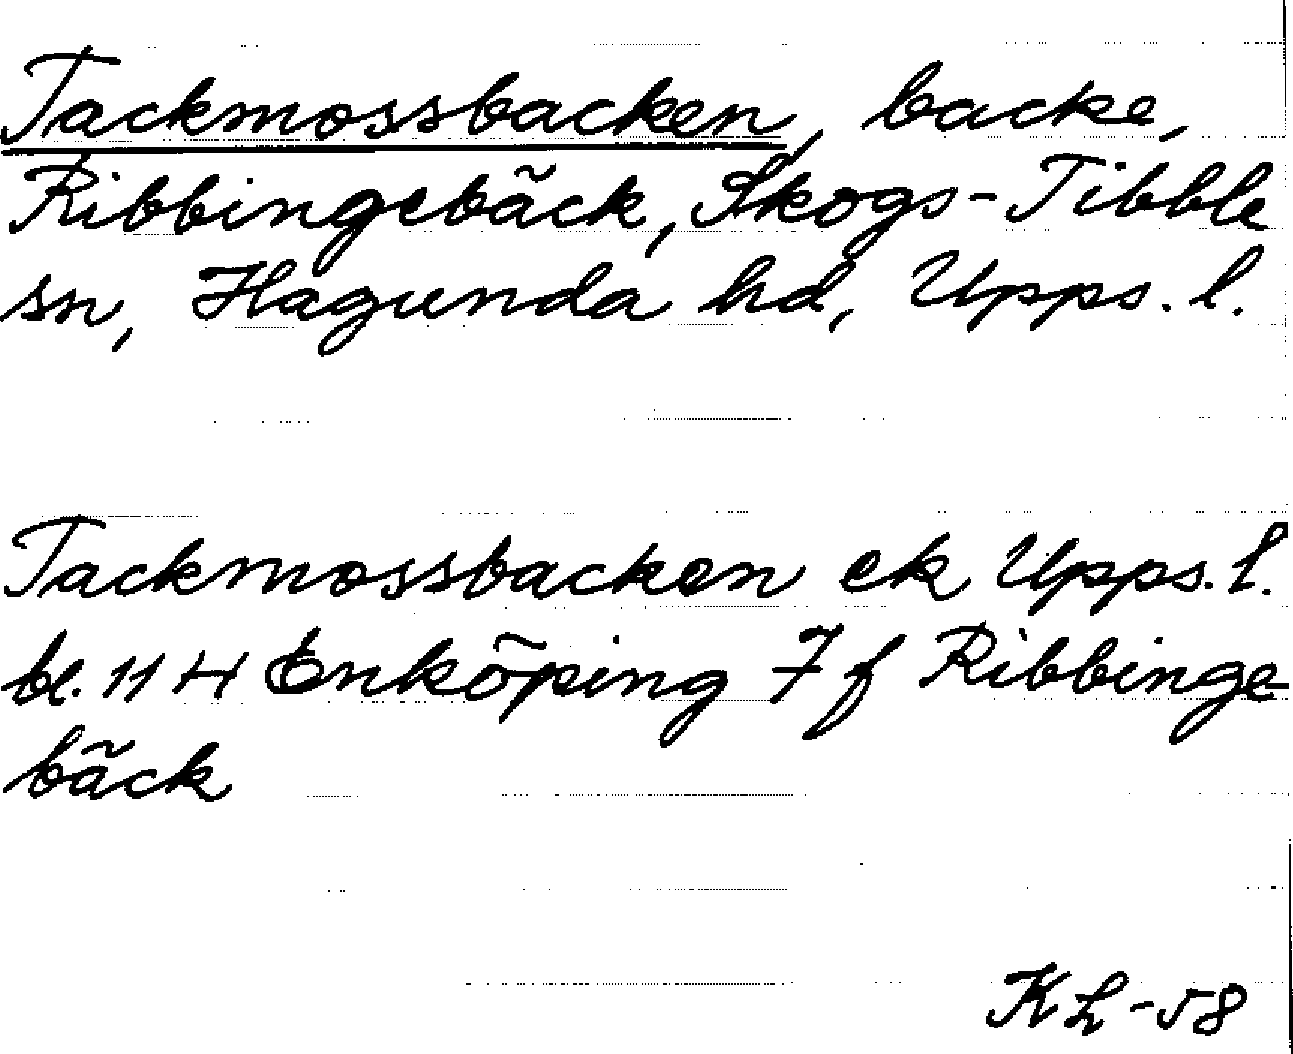 Tackmossbacken, backe,
Ribbingebäck, Skogs-Tibble
sn, Hagunda hd, Upps. l.
Tackmossbacken ek Upps. l.
bl. 114 Enköping 7 f Ribbinge
bäck
KL-58